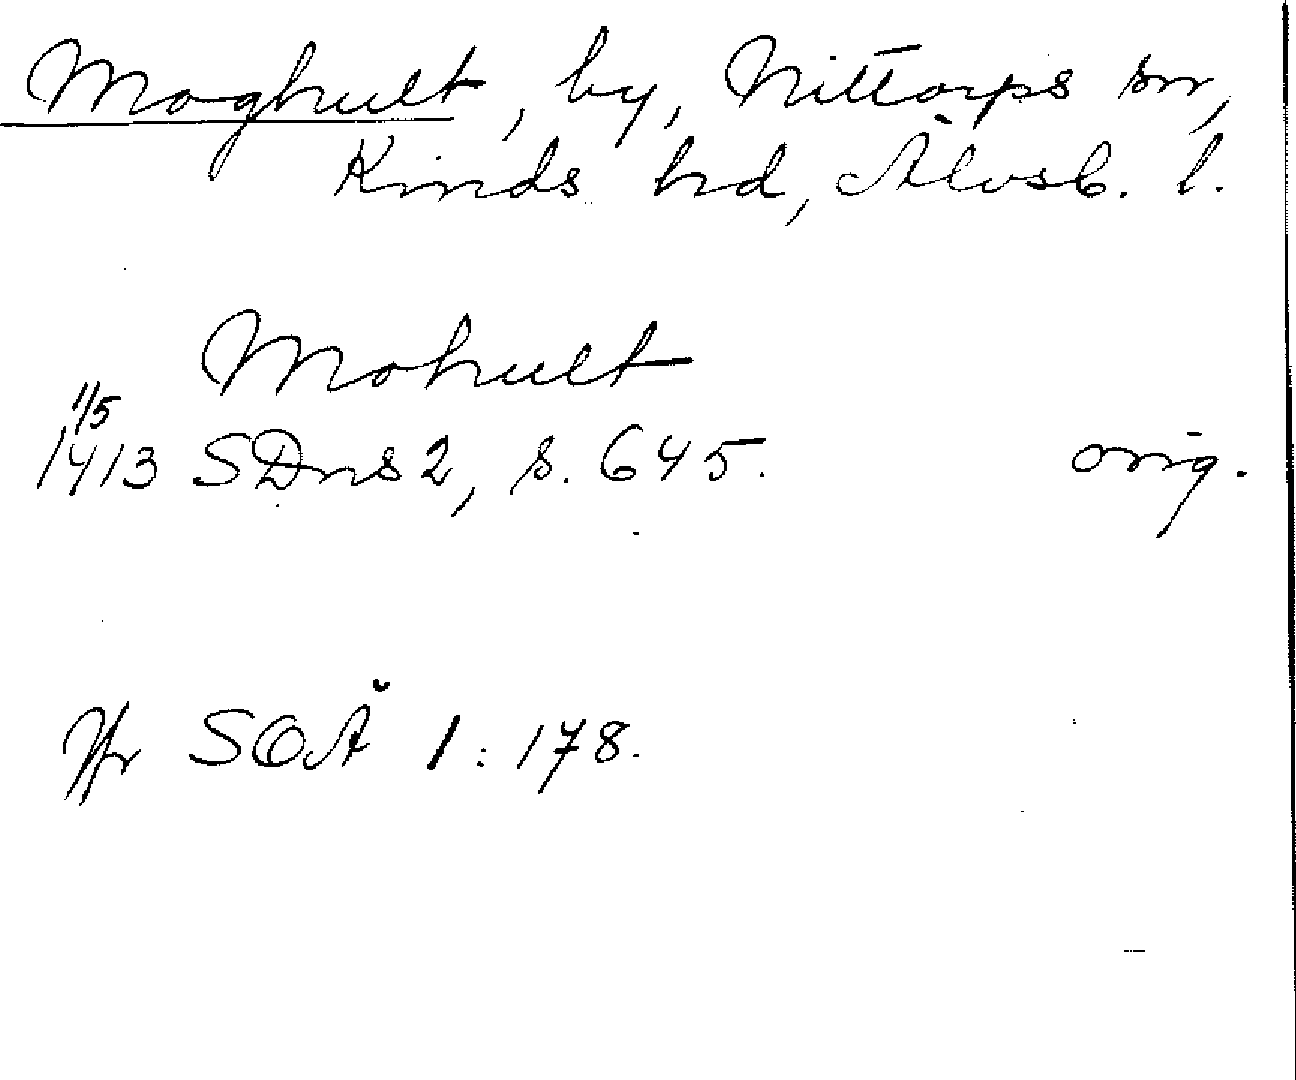 Moghult, by, Nittorps sn,
Kinds hd, Älvsb. l.
Mohult
1/5
1413 SDns 2, s. 645. orig.
Jfr SOÄ 1:178.